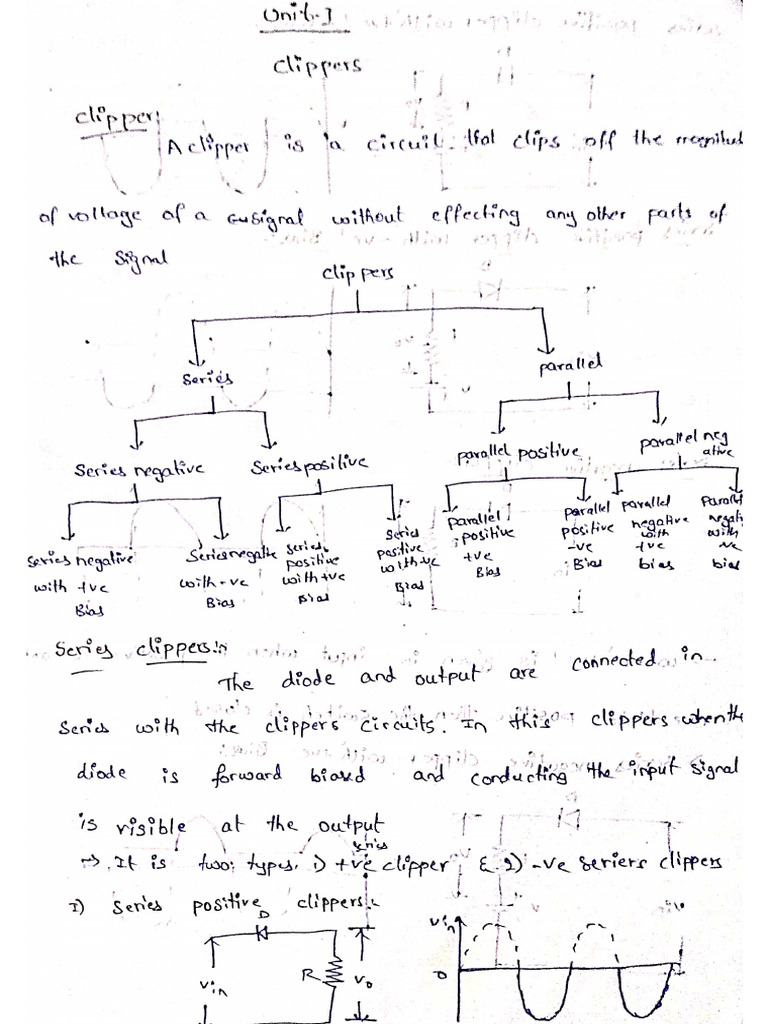 Unit-I
Clippers
Clipper:
A clipper is a circuit that clips off the magnitud
of voltage of a signal without effecting any other parts of
the signal
Clippers
Series
parallel
Series negative
Series positive
parallel positive
parallel neg
ative
Series negative
with +ve
Bias
Series negative
with -ve
Bias
Series
positive
with +ve
Bias
Series
positive
with -ve
Bias
Parallel
positive
+ve
Bias
parallel
positive
-ve
Bias
parallel
negative
with
+ve
bias
parallel
negati
with
-ve
bias
Series clippers:-
The diode and output are connected in
series with the clippers circuits. In this clippers when the
diode is forward biased and conducting the input signal
is visible at the output
→ It is two types. i) +ve series clipper & 2) -ve seriers clippers
I) Series positive clippers:-
D
Vin
R
Vo
Vin
0